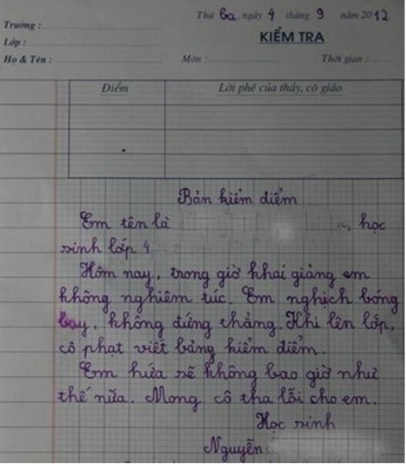 Thứ ba, ngày 4 tháng 9 năm 2012
Trường :
KIỂM TRA
Lớp :
Họ & Tên : Môn : Thời gian :
Điểm Lời phê của thầy, cô giáo
Bản kiểm điểm
Em tên là , học
sinh lớp 4
Hôm nay, trong giờ khai giảng em
không nghiêm túc. Em nghịch bóng
bay, không đứng thẳng. Khi lên lớp,
cô phạt viết bảng kiểm điểm.
Em hứa sẽ không bao giờ như
thế nữa. Mong cô tha lỗi cho em.
Học sinh
Nguyễn